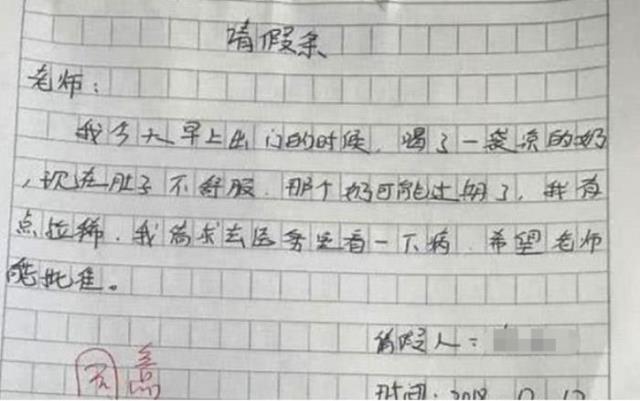 请假条
老师：
我今天早上出门的时候，喝了一袋凉的奶
，现在肚子不舒服．那个奶可能过期了，我有
点拉稀．我请求去医务室看一下病．希望老师
能批准。
请假人：
时间：2018